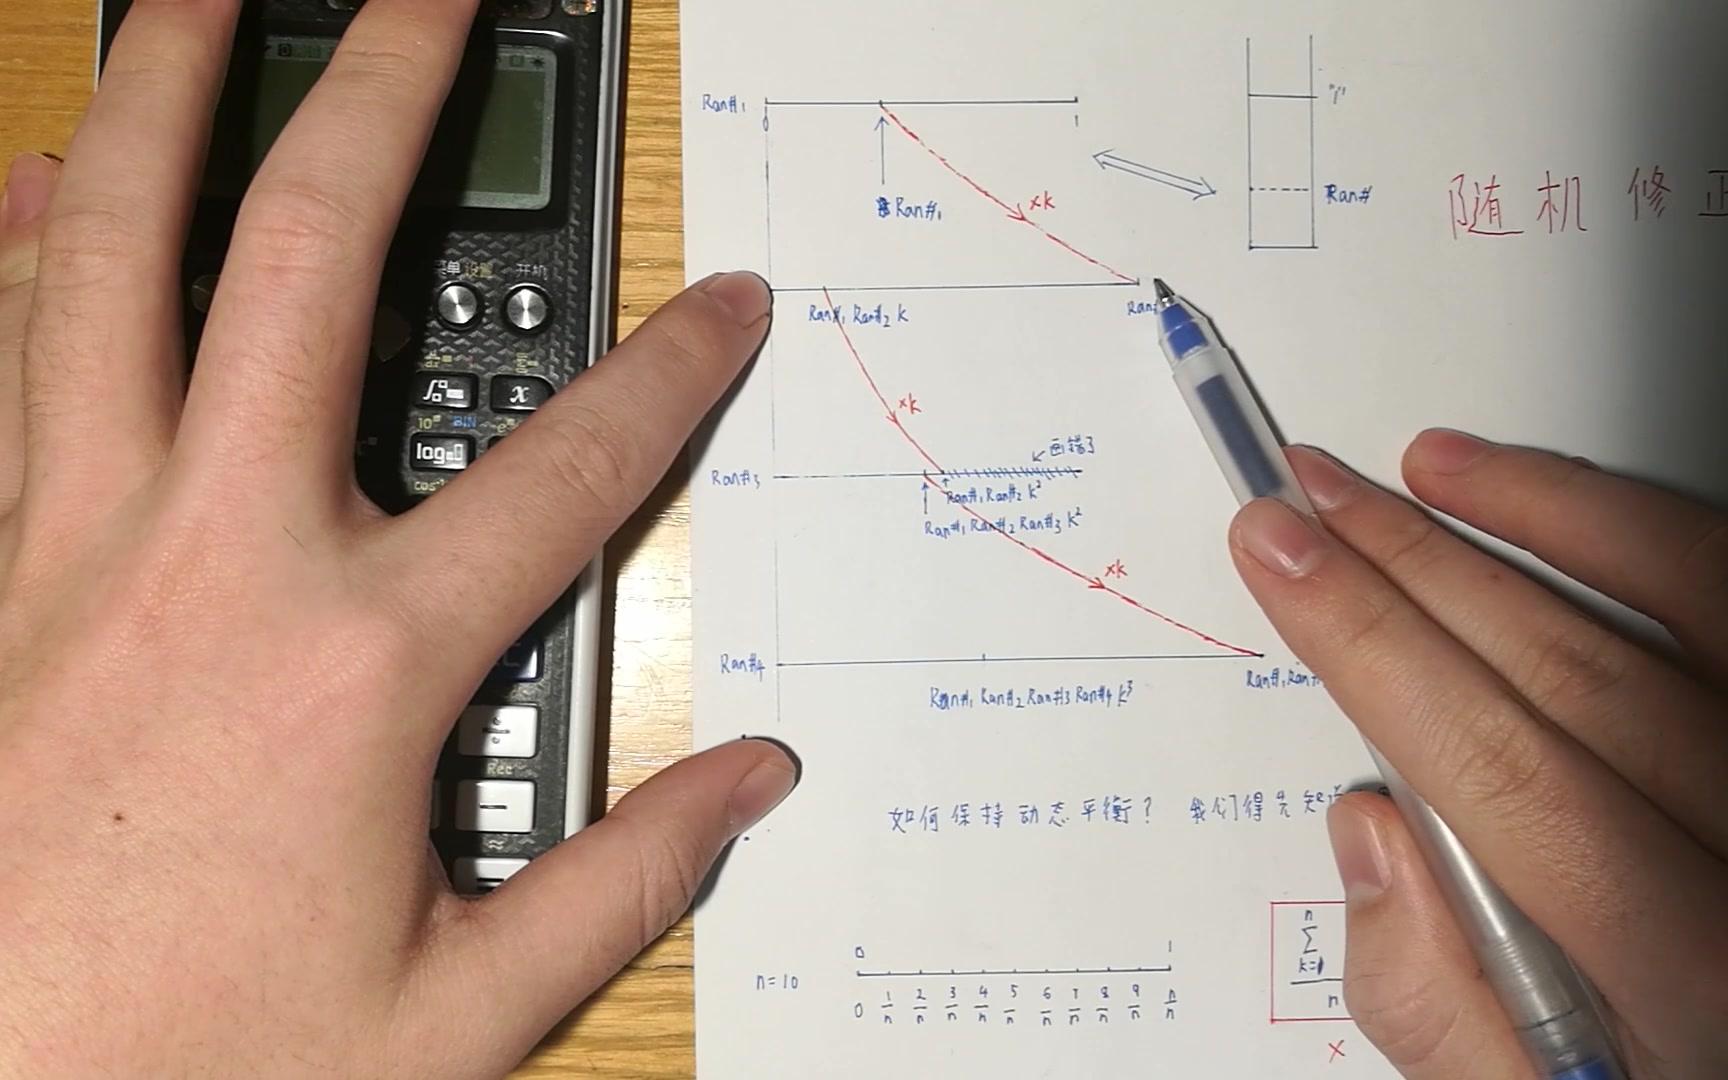 Ran#₁
0
1
Ran#₁
xk
"1"
Ran#
随机修正
菜单 设置 开机
Ran#₁ Ran#₂ k
Ran
x
xk
10ⁿ BIN
log
画错了
Ran#₃
Ran#₁ Ran#₂ k²
Ran#₁ Ran#₂ Ran#₃ k²
xk
Ran#₄
Ran#₁ Ran#₂ Ran#₃ Ran#₄ k³
Ran#₁ Ran
÷
Rec
−
≈
如何保持动态平衡? 我们得先知道
n=10
0 1
0 1/n 2/n 3/n 4/n 5/n 6/n 7/n 8/n 9/n n/n
n
Σ
k=1
n
×